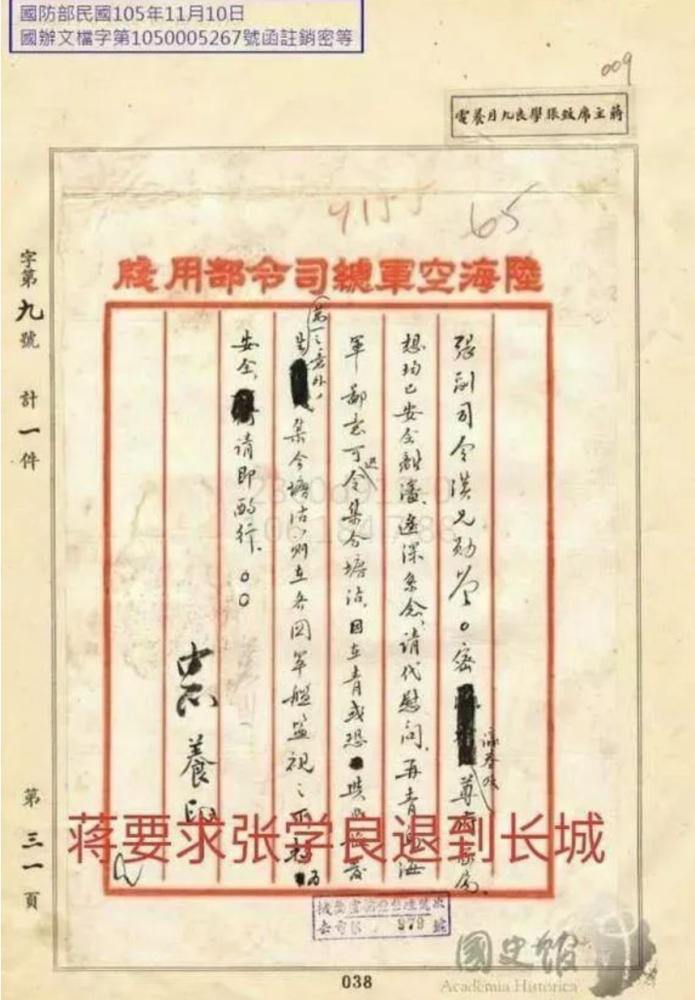 國防部民國105年11月10日
國辦文檔字第1050005267號函註銷密等
009
蔣主席致張學良九月養電
65
陸海空軍總司令部用牋
張副司令漢兄勛鑒。密 尊府家屬、
瀛眷及
想均已安全離瀋、遙深系念、請代慰問。再青島海
軍鄙意可速令集合塘沽。因在青或恐
生萬一之意外、集合塘沽、則在各國軍艦監視之
安全、請即酌行、○○
中正 養印
字第九號 計一件
第三一頁
蒋要求张学良退到长城
979
國史館
Academia Historica
038